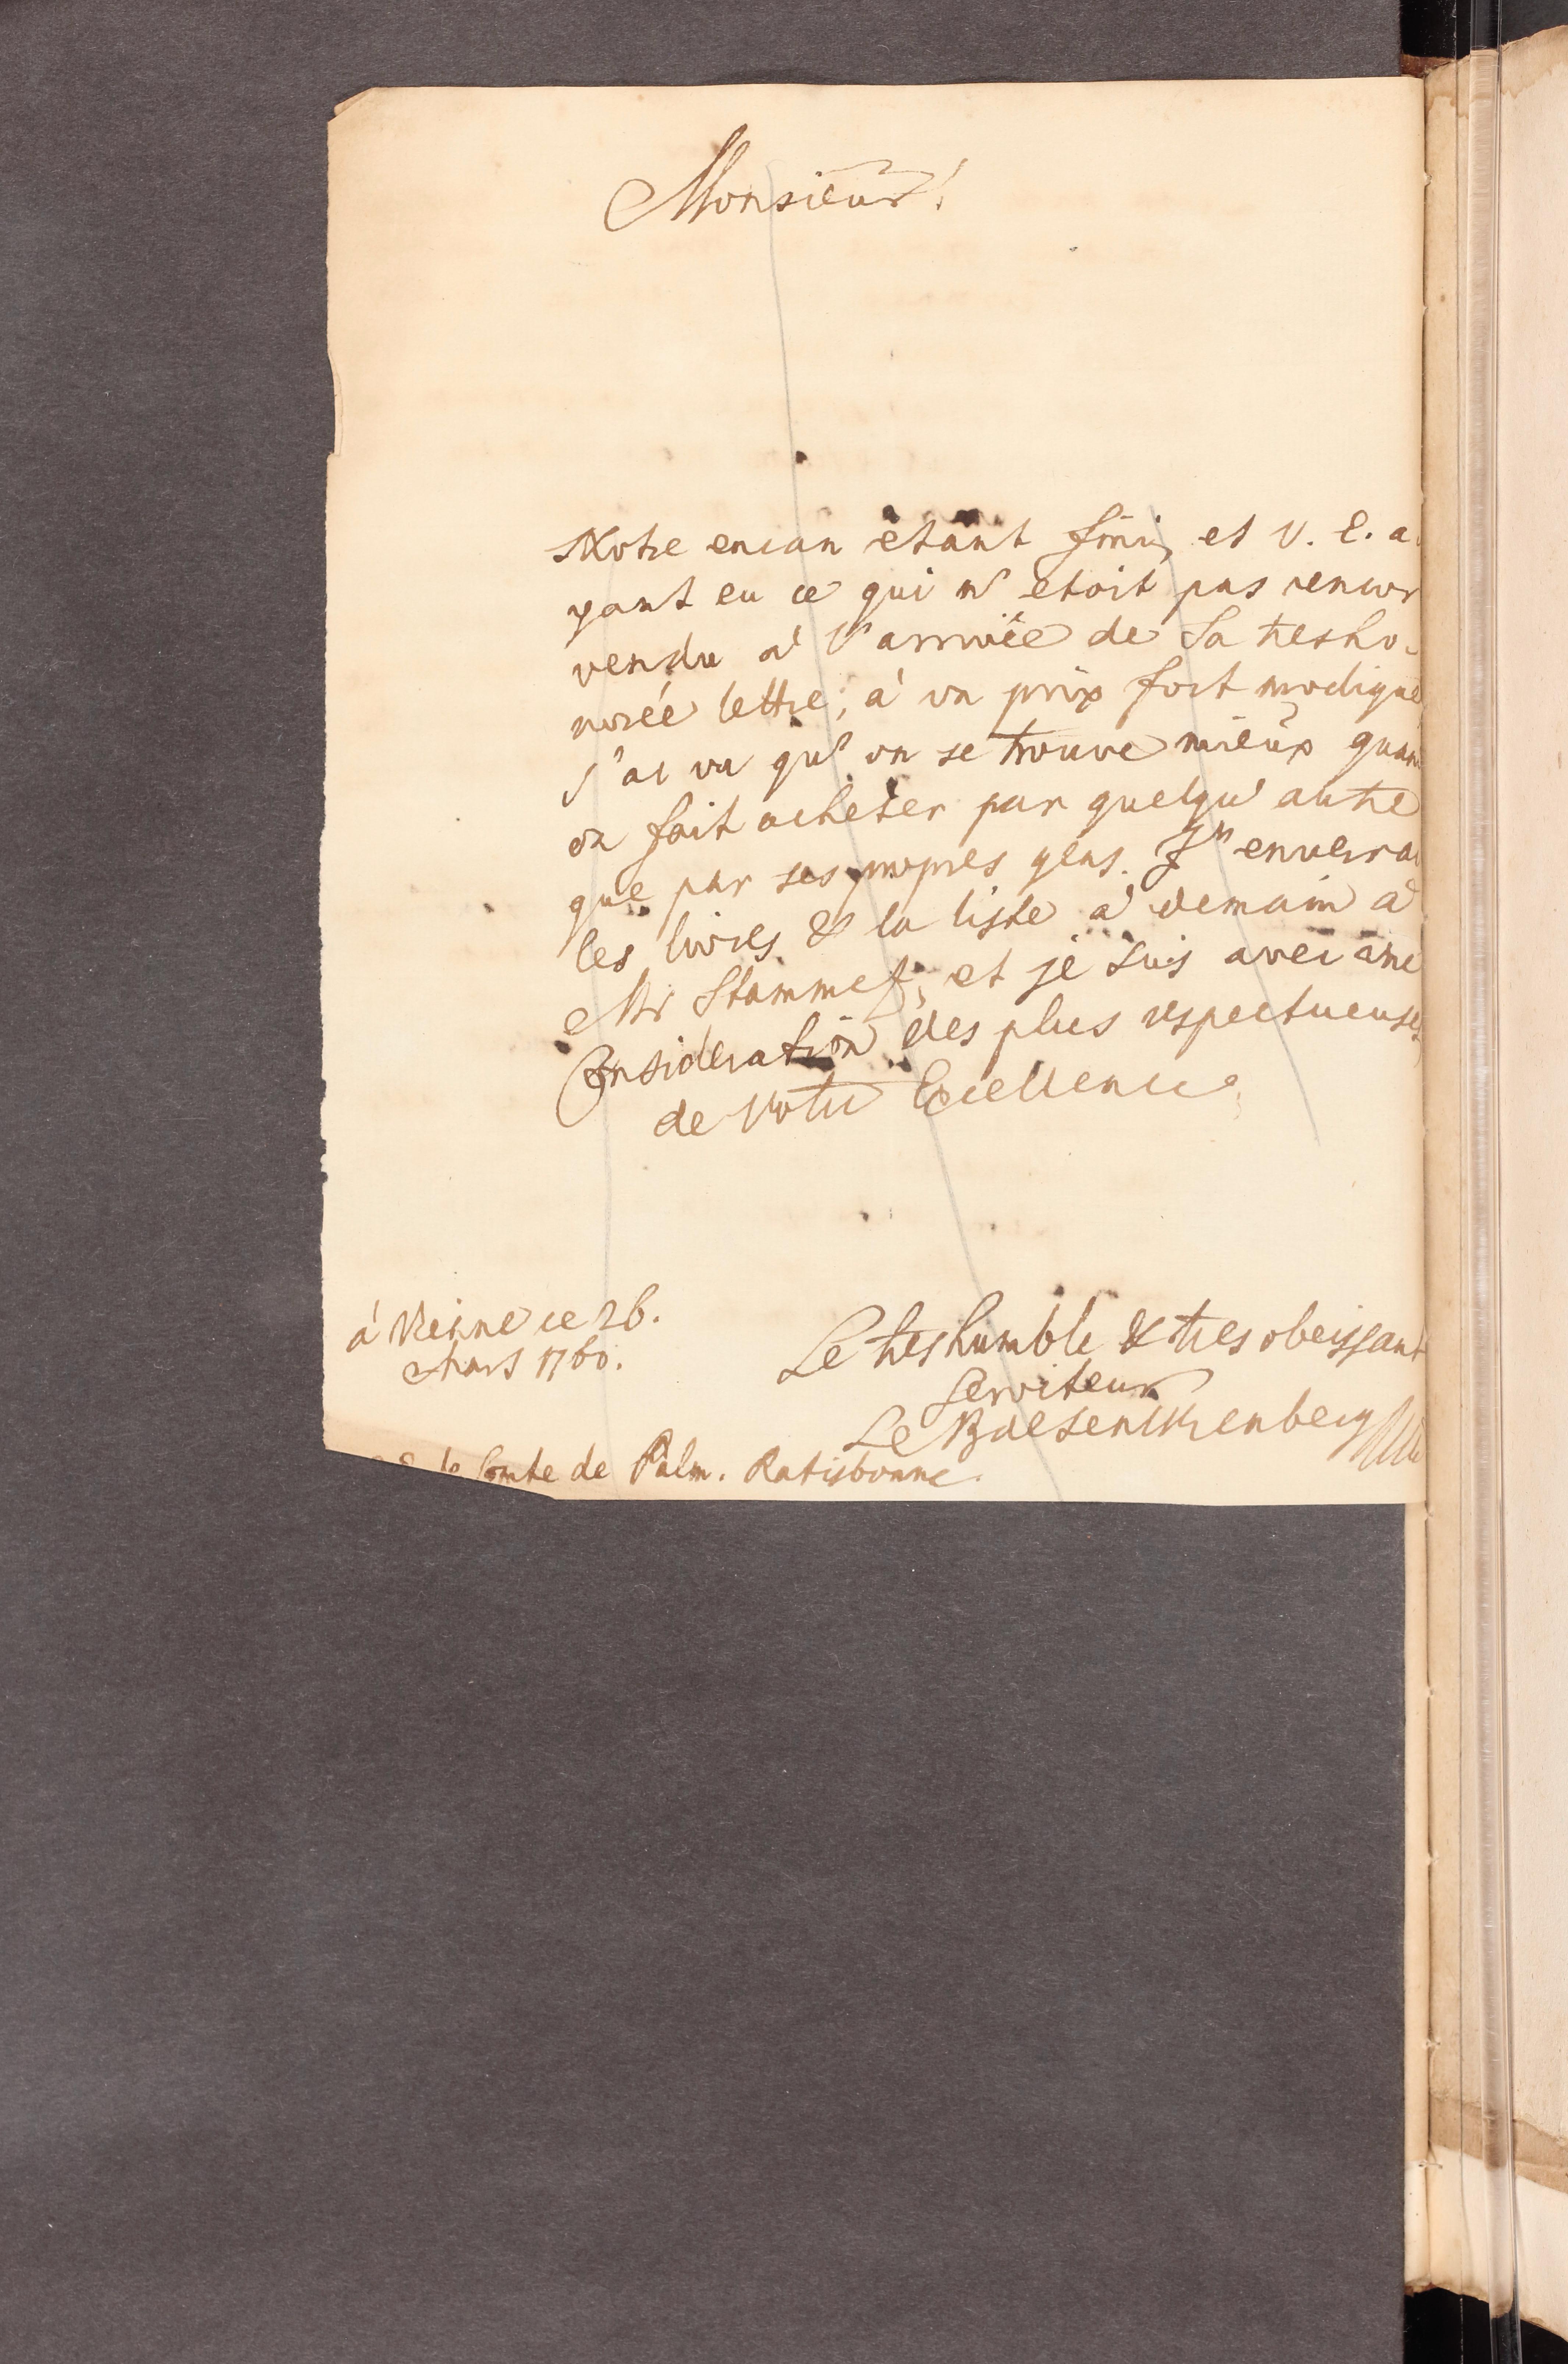 Monsieur!
Notre encan etant fini, et V. E. a
yant eu ce qui n' etoit pas encor
vendu a' l'arrivée de Sa tresho-
norée lettre, à un prix fort modique
j'ai vu qu' on se trouve mieux quand
on fait acheter par quelqu' autre
que par ses propres gens. J'enverrai
les livres & la liste a' demain à
Mr Stammez; et je suis avec une
Consideration des plus respectueuses
de Votre Excellence
à Vienne ce 26.
Mars 1760.
Le tres humble & tres obeissant
Serviteur
Le B de Senckenberg
le Comte de Palm. Ratisbonne.